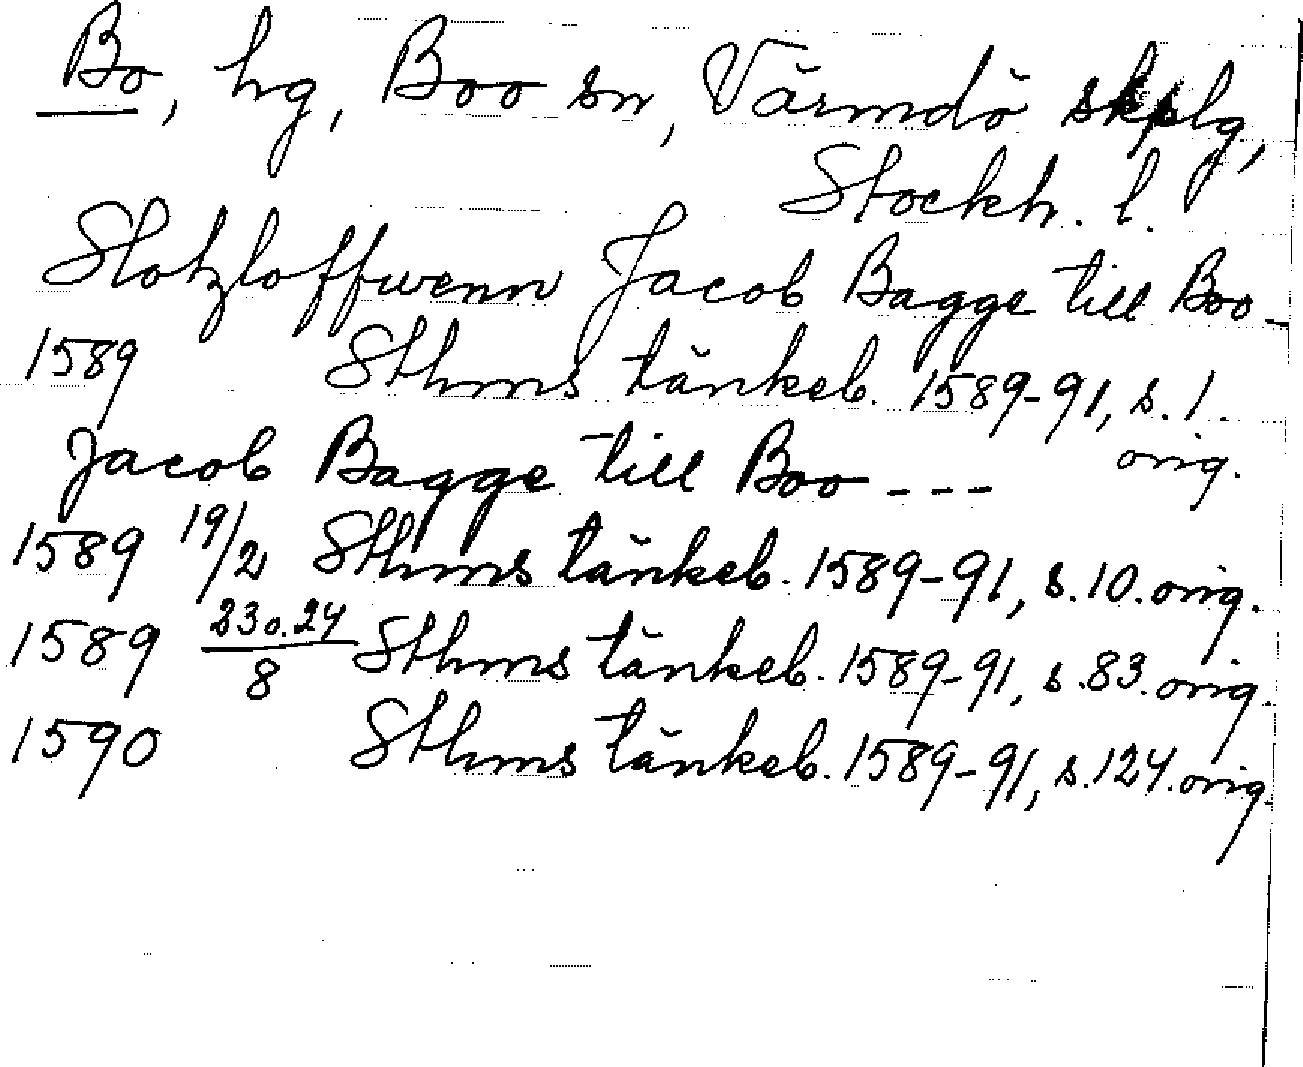 Bo, hg, Boo sn, Värmdö skplg,
Stockh. l.
Slotzloffwenn Jacob Bagge till Boo
1589 Sthms tänkeb. 1589-91, s. 1.
orig.
Jacob Bagge till Boo ---
1589 19/2 Sthms tänkeb. 1589-91, s. 10. orig.
1589 23 o. 24/8 Sthms tänkeb. 1589-91, s. 83. orig.
1590 Sthms tänkeb. 1589-91, s. 124. orig.